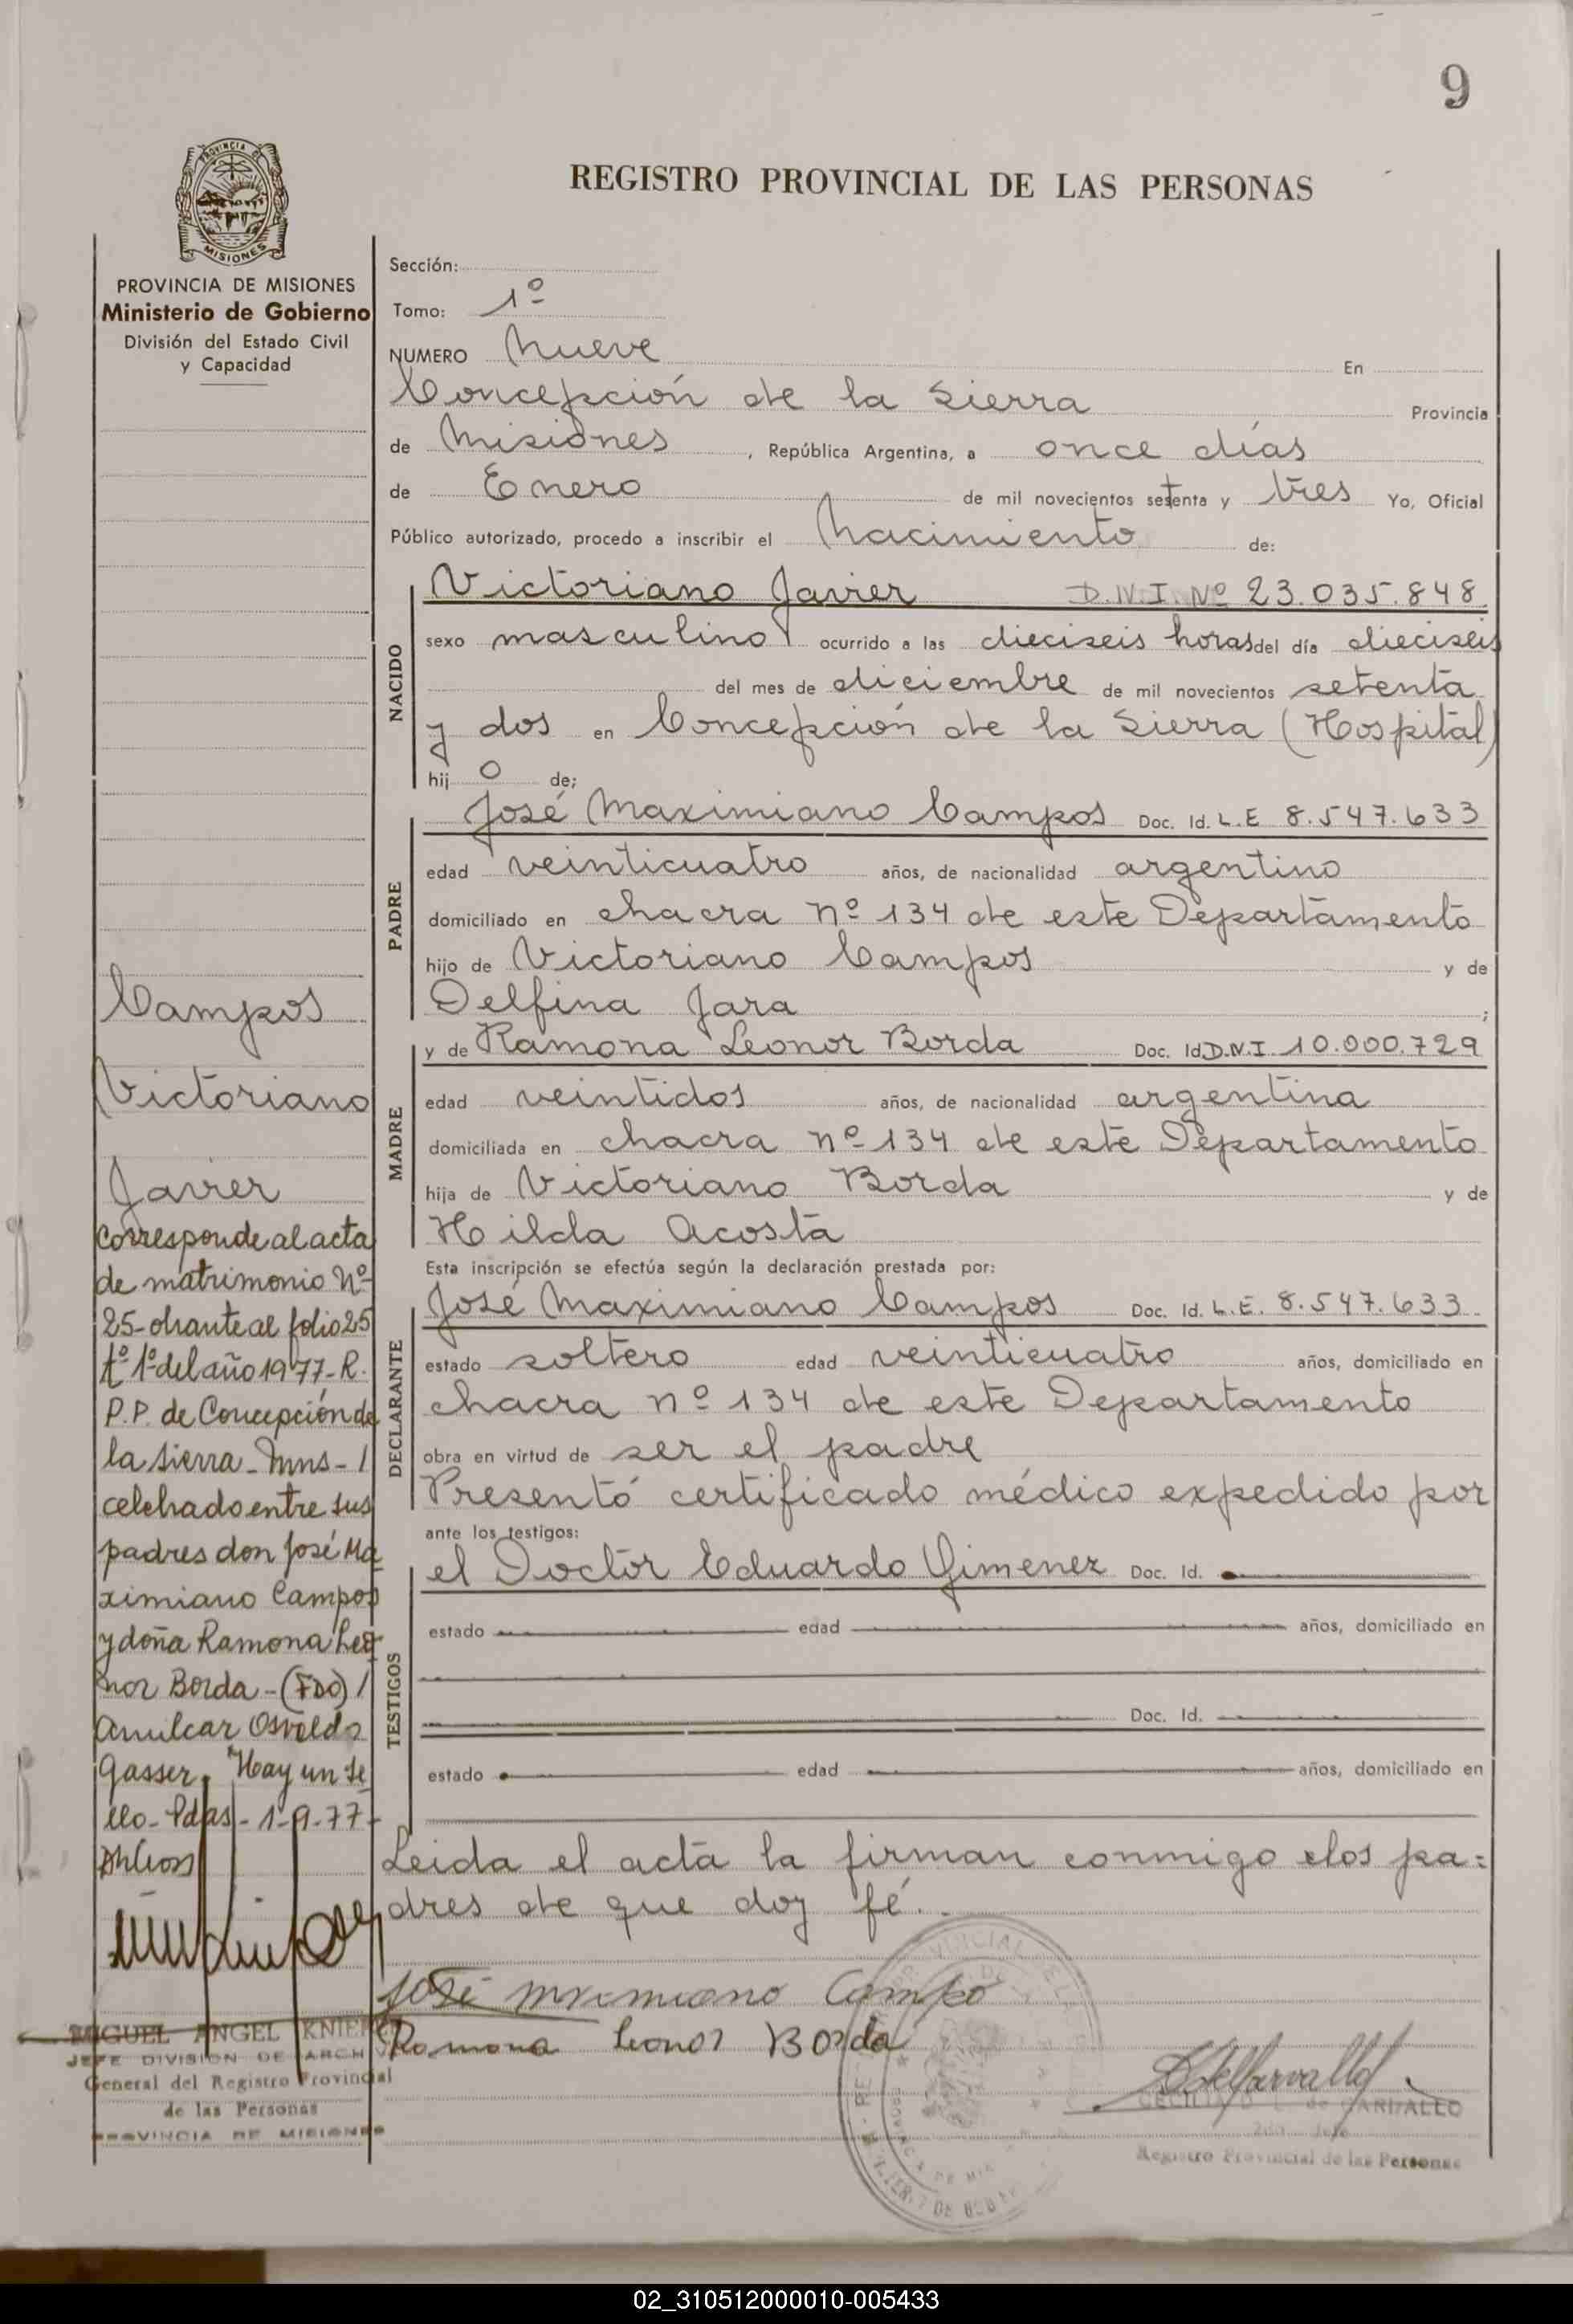 9
PROVINCIA DE
MISIONES
REGISTRO PROVINCIAL DE LAS PERSONAS
PROVINCIA DE MISIONES
Ministerio de Gobierno
División del Estado Civil
y Capacidad
Sección:
Tomo: 1º
NUMERO Nueve En
Concepción de la Sierra Provincia
de Misiones, República Argentina, a once días
de Enero de mil novecientos setenta y tres Yo, Oficial
Público autorizado, procedo a inscribir el Nacimiento de:
NACIDO
Victoriano Javier D.N.I. Nº 23.035.848
sexo masculino ocurrido a las dieciseis horas del día dieciseis
del mes de diciembre de mil novecientos setenta
y dos en Concepción de la Sierra (Hospital)
hijo de;
PADRE
José Maximiano Campos Doc. Id. L.E 8.547.633
edad veinticuatro años, de nacionalidad argentino
domiciliado en chacra nº 134 de este Departamento
hijo de Victoriano Campos y de
Delfina Jara ;
MADRE
y de Ramona Leonor Borda Doc. Id D.N.I 10.000.729
edad veintidos años, de nacionalidad argentina
domiciliada en chacra nº 134 de este Departamento
hija de Victoriano Borda y de
Hilda Acosta
Esta inscripción se efectúa según la declaración prestada por:
DECLARANTE
José Maximiano Campos Doc. Id. L.E. 8.547.633
estado soltero edad veinticuatro años, domiciliado en
chacra nº 134 de este Departamento
obra en virtud de ser el padre
Presentó certificado médico expedido por
ante los testigos:
TESTIGOS
el Doctor Eduardo Gimenez Doc. Id.
estado edad años, domiciliado en
Doc. Id.
estado edad años, domiciliado en
Leida el acta la firman conmigo los pa=
dres de que doy fé.
José Maximiano Campo
Ramona Leonor Borda
Campos
Victoriano
Javier
Corresponde al acta
de matrimonio Nº
25- obrante al folio 25
tº 1º del año 1977- R.
P.P. de Concepción de
la Sierra - Mns - /
celebrado entre sus
padres don José Ma
ximiano Campos
y doña Ramona Leo
nor Borda - (FDO) /
Amilcar Osvaldo
Gasser. Hay un se
llo - Pdas - 1-9-77-
MIGUEL ANGEL
JEFE DIVISION DE ARCHIVO
General del Registro Provincial
de las Personas
PROVINCIA DE MISIONES
de CARBALLO
2do. Jefe
Registro Provincial de las Personas
02_310512000010-005433